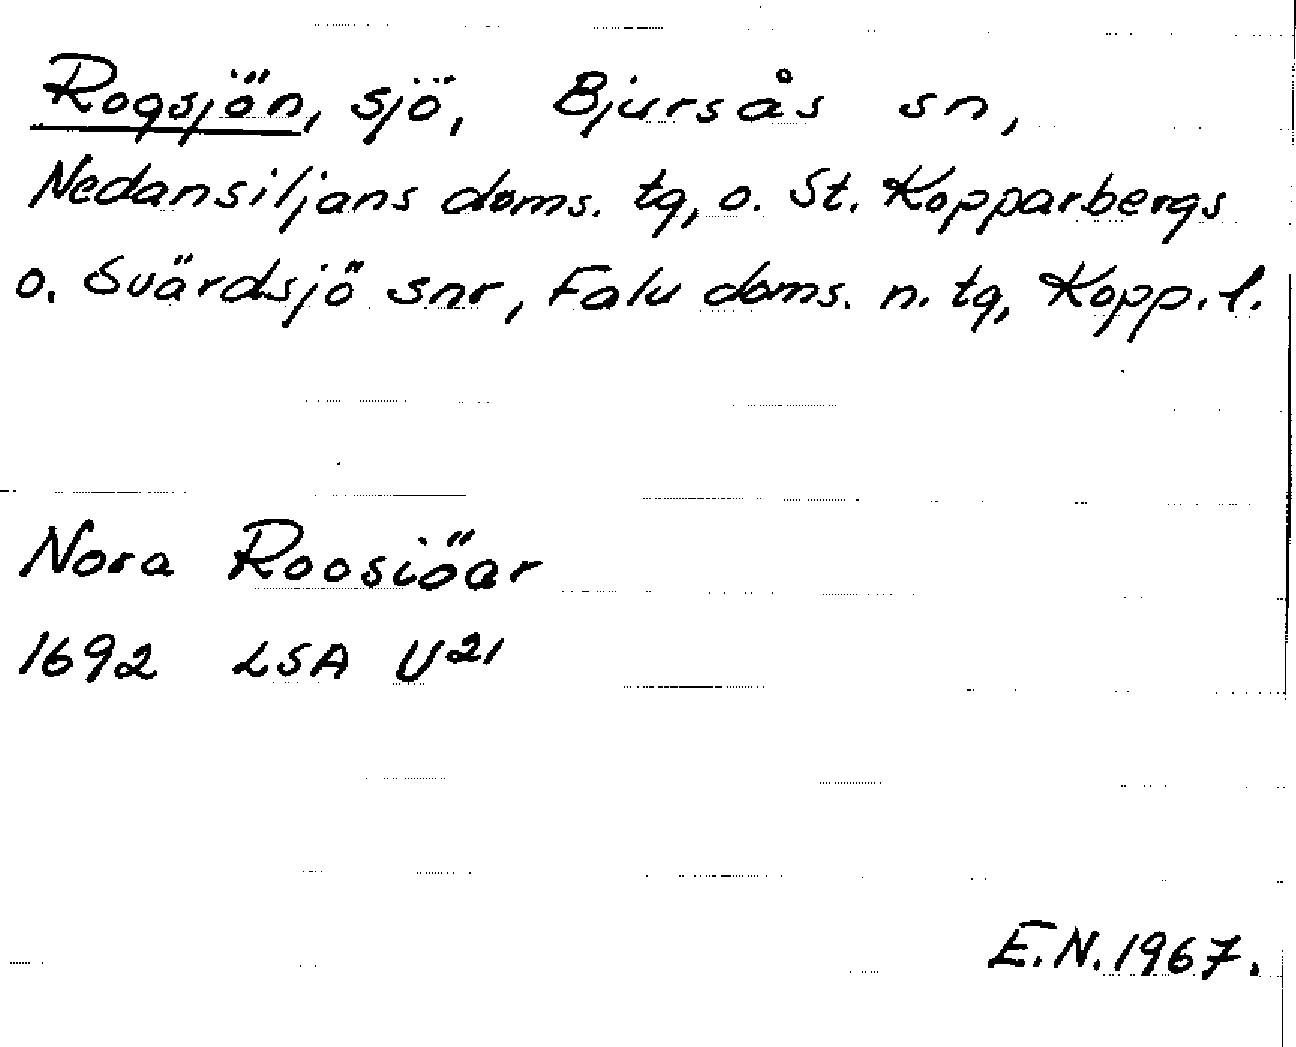 Rogsjön, sjö, Bjursås sn,
Nedansiljans doms. tg, o. St. Kopparbergs
o. Svärdsjö snr, Falu doms. n. tg, Kopp. l.
Nora Roosiöar
1692 LSA U21
E.N. 1967.